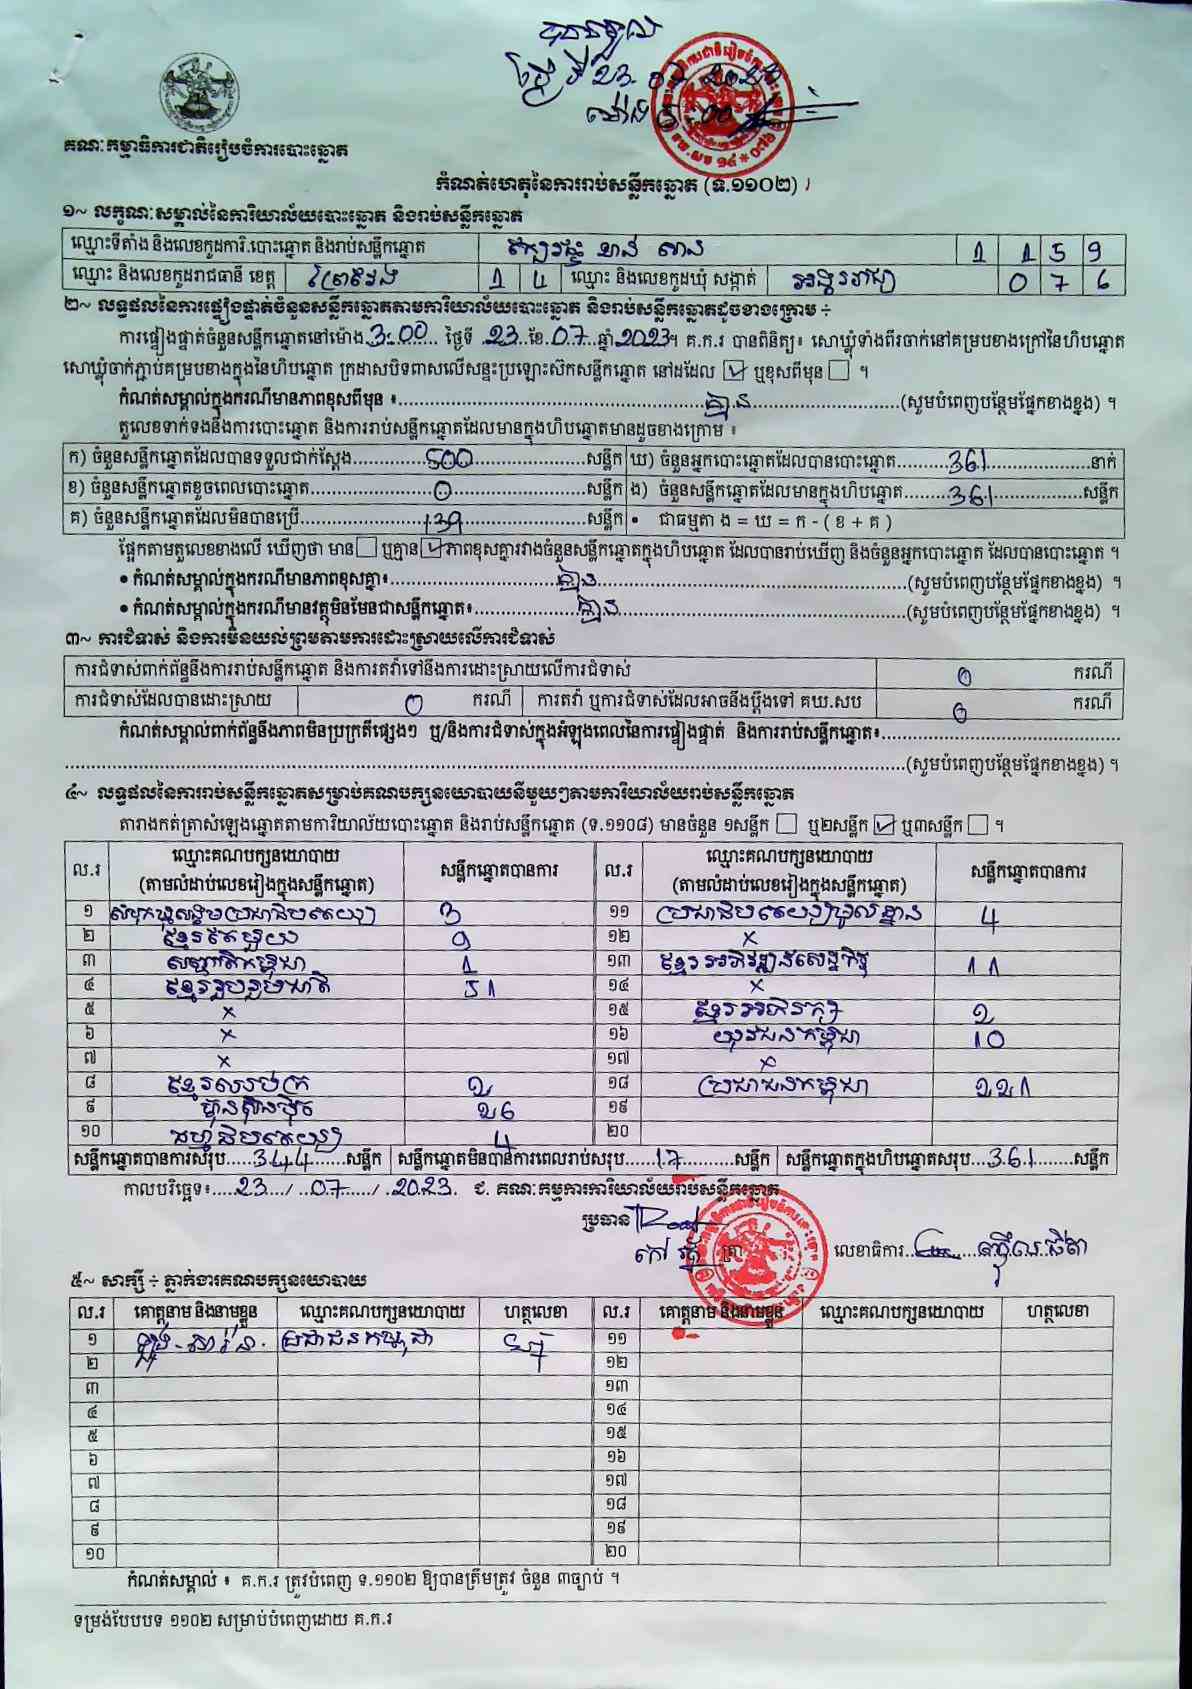 បានទទួល
ថ្ងៃទី 23.07.2023
ម៉ោង 5:00
គណៈកម្មាធិការជាតិរៀបចំការបោះឆ្នោត
កំណត់ហេតុនៃការរាប់សន្លឹកឆ្នោត (ទ.១១០២)
១~ លក្ខណៈសម្គាល់នៃការិយាល័យបោះឆ្នោត និងរាប់សន្លឹកឆ្នោត
ឈ្មោះទីតាំង និងលេខកូដការិ.បោះឆ្នោត និងរាប់សន្លឹកឆ្នោត 1 1 5 9
ឈ្មោះ និងលេខកូដរាជធានី ខេត្ត ព្រៃវែង 1 4 ឈ្មោះ និងលេខកូដឃុំ សង្កាត់ 0 7 6
២~ លទ្ធផលនៃការផ្ទៀងផ្ទាត់ចំនួនសន្លឹកឆ្នោតតាមការិយាល័យបោះឆ្នោត និងរាប់សន្លឹកឆ្នោតដូចខាងក្រោម ÷
ការផ្ទៀងផ្ទាត់ចំនួនសន្លឹកឆ្នោតនៅម៉ោង 3:00 ថ្ងៃទី 23 ខែ 07 ឆ្នាំ 2023។ គ.ក.រ បានពិនិត្យ៖ សោឃ្លុំទាំងពីរចាក់នៅគម្របខាងក្រៅនៃហិបឆ្នោត
សោឃ្លុំចាក់ភ្ជាប់គម្របខាងក្នុងនៃហិបឆ្នោត ក្រដាសបិទពាសលើសន្ទះប្រឡោះស៊កសន្លឹកឆ្នោត នៅដដែល ☑ ឬខុសពីមុន ☐ ។
កំណត់សម្គាល់ក្នុងករណីមានភាពខុសពីមុន ៖ គ្មាន (សូមបំពេញបន្ថែមផ្នែកខាងខ្នង) ។
តួលេខទាក់ទងនឹងការបោះឆ្នោត និងការរាប់សន្លឹកឆ្នោតដែលមានក្នុងហិបឆ្នោតមានដូចខាងក្រោម ៖
ក) ចំនួនសន្លឹកឆ្នោតដែលបានទទួលជាក់ស្តែង 500 សន្លឹក ឃ) ចំនួនអ្នកបោះឆ្នោតដែលបានបោះឆ្នោត 361 នាក់
ខ) ចំនួនសន្លឹកឆ្នោតខូចពេលបោះឆ្នោត 0 សន្លឹក ង) ចំនួនសន្លឹកឆ្នោតដែលមានក្នុងហិបឆ្នោត 361 សន្លឹក
គ) ចំនួនសន្លឹកឆ្នោតដែលមិនបានប្រើ 139 សន្លឹក • ជាធម្មតា ង = ឃ = ក - ( ខ + គ )
ផ្អែកតាមតួលេខខាងលើ ឃើញថា មាន ☐ ឬគ្មាន ☑ ភាពខុសគ្នារវាងចំនួនសន្លឹកឆ្នោតក្នុងហិបឆ្នោត ដែលបានរាប់ឃើញ និងចំនួនអ្នកបោះឆ្នោត ដែលបានបោះឆ្នោត ។
• កំណត់សម្គាល់ក្នុងករណីមានភាពខុសគ្នា៖ គ្មាន (សូមបំពេញបន្ថែមផ្នែកខាងខ្នង) ។
• កំណត់សម្គាល់ក្នុងករណីមានវត្ថុមិនមែនជាសន្លឹកឆ្នោត៖ គ្មាន (សូមបំពេញបន្ថែមផ្នែកខាងខ្នង) ។
៣~ ការជំទាស់ និងការមិនយល់ព្រមតាមការដោះស្រាយលើការជំទាស់
ការជំទាស់ពាក់ព័ន្ធនឹងការរាប់សន្លឹកឆ្នោត និងការតវ៉ាទៅនឹងការដោះស្រាយលើការជំទាស់ 0 ករណី
ការជំទាស់ដែលបានដោះស្រាយ 0 ករណី ការតវ៉ា ឬការជំទាស់ដែលអាចនឹងប្តឹងទៅ គឃ.សប 0 ករណី
កំណត់សម្គាល់ពាក់ព័ន្ធនឹងភាពមិនប្រក្រតីផ្សេងៗ ឬ/និងការជំទាស់ក្នុងអំឡុងពេលនៃការផ្ទៀងផ្ទាត់ និងការរាប់សន្លឹកឆ្នោត៖
(សូមបំពេញបន្ថែមផ្នែកខាងខ្នង) ។
៤~ លទ្ធផលនៃការរាប់សន្លឹកឆ្នោតសម្រាប់គណបក្សនយោបាយនីមួយៗតាមការិយាល័យរាប់សន្លឹកឆ្នោត
តារាងកត់ត្រាសំឡេងឆ្នោតតាមការិយាល័យបោះឆ្នោត និងរាប់សន្លឹកឆ្នោត (ទ.១១០៨) មានចំនួន ១សន្លឹក ☐ ឬ២សន្លឹក ☑ ឬ៣សន្លឹក ☐ ។
ល.រ ឈ្មោះគណបក្សនយោបាយ សន្លឹកឆ្នោតបានការ ល.រ ឈ្មោះគណបក្សនយោបាយ សន្លឹកឆ្នោតបានការ
(តាមលំដាប់លេខរៀងក្នុងសន្លឹកឆ្នោត) (តាមលំដាប់លេខរៀងក្នុងសន្លឹកឆ្នោត)
១ សំបុកឃ្មុំសង្គមប្រជាធិបតេយ្យ 3 ១១ ប្រជាធិបតេយ្យមូលដ្ឋាន 4
២ ខ្មែរតែមួយ 9 ១២ ×
៣ សញ្ជាតិកម្ពុជា 1 ១៣ ខ្មែរអភិវឌ្ឍន៍សេដ្ឋកិច្ច 11
៤ ខ្មែររួបរួមជាតិ 51 ១៤ ×
៥ × ១៥ ខ្មែរអភិរក្ស 2
៦ × ១៦ យុវជនកម្ពុជា 10
៧ × ១៧ ×
៨ ខ្មែរឈប់ក្រ 2 ១៨ ប្រជាជនកម្ពុជា 221
៩ ហ៊្វុនស៊ិនប៉ិច 26 ១៩
១០ ធម្មាធិបតេយ្យ 4 ២០
សន្លឹកឆ្នោតបានការសរុប 344 សន្លឹក សន្លឹកឆ្នោតមិនបានការពេលរាប់សរុប 17 សន្លឹក សន្លឹកឆ្នោតក្នុងហិបឆ្នោតសរុប 361 សន្លឹក
កាលបរិច្ឆេទ៖ 23 / 07 / 2023. ជ. គណៈកម្មការការិយាល័យរាប់សន្លឹកឆ្នោត
ប្រធាន
ត្រា លេខាធិការ
៥~ សាក្សី ÷ ភ្នាក់ងារគណបក្សនយោបាយ
ល.រ គោត្តនាម និងនាមខ្លួន ឈ្មោះគណបក្សនយោបាយ ហត្ថលេខា ល.រ គោត្តនាម និងនាមខ្លួន ឈ្មោះគណបក្សនយោបាយ ហត្ថលេខា
១ ប្រជាជនកម្ពុជា ១១
២ ១២
៣ ១៣
៤ ១៤
៥ ១៥
៦ ១៦
៧ ១៧
៨ ១៨
៩ ១៩
១០ ២០
កំណត់សម្គាល់ ៖ គ.ក.រ ត្រូវបំពេញ ទ.១១០២ ឱ្យបានត្រឹមត្រូវ ចំនួន ៣ច្បាប់ ។
ទម្រង់បែបបទ ១១០២ សម្រាប់បំពេញដោយ គ.ក.រ